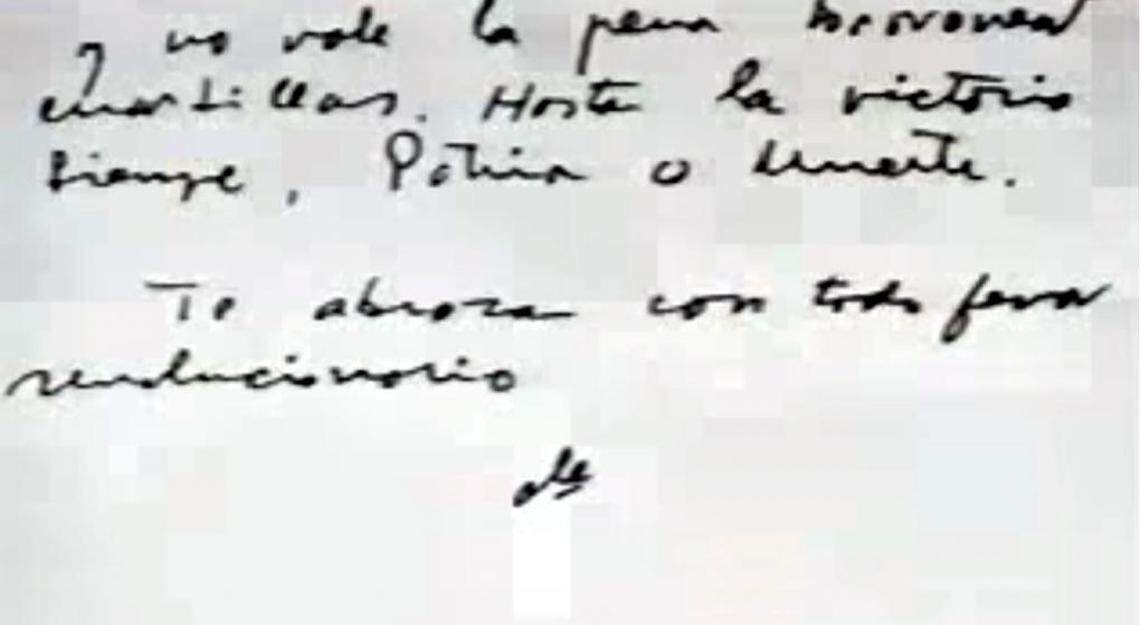 y no vale la pena borronear
cuartillas. Hasta la victoria
siempre, Patria o Muerte.
Te abraza con todo fervor
revolucionario